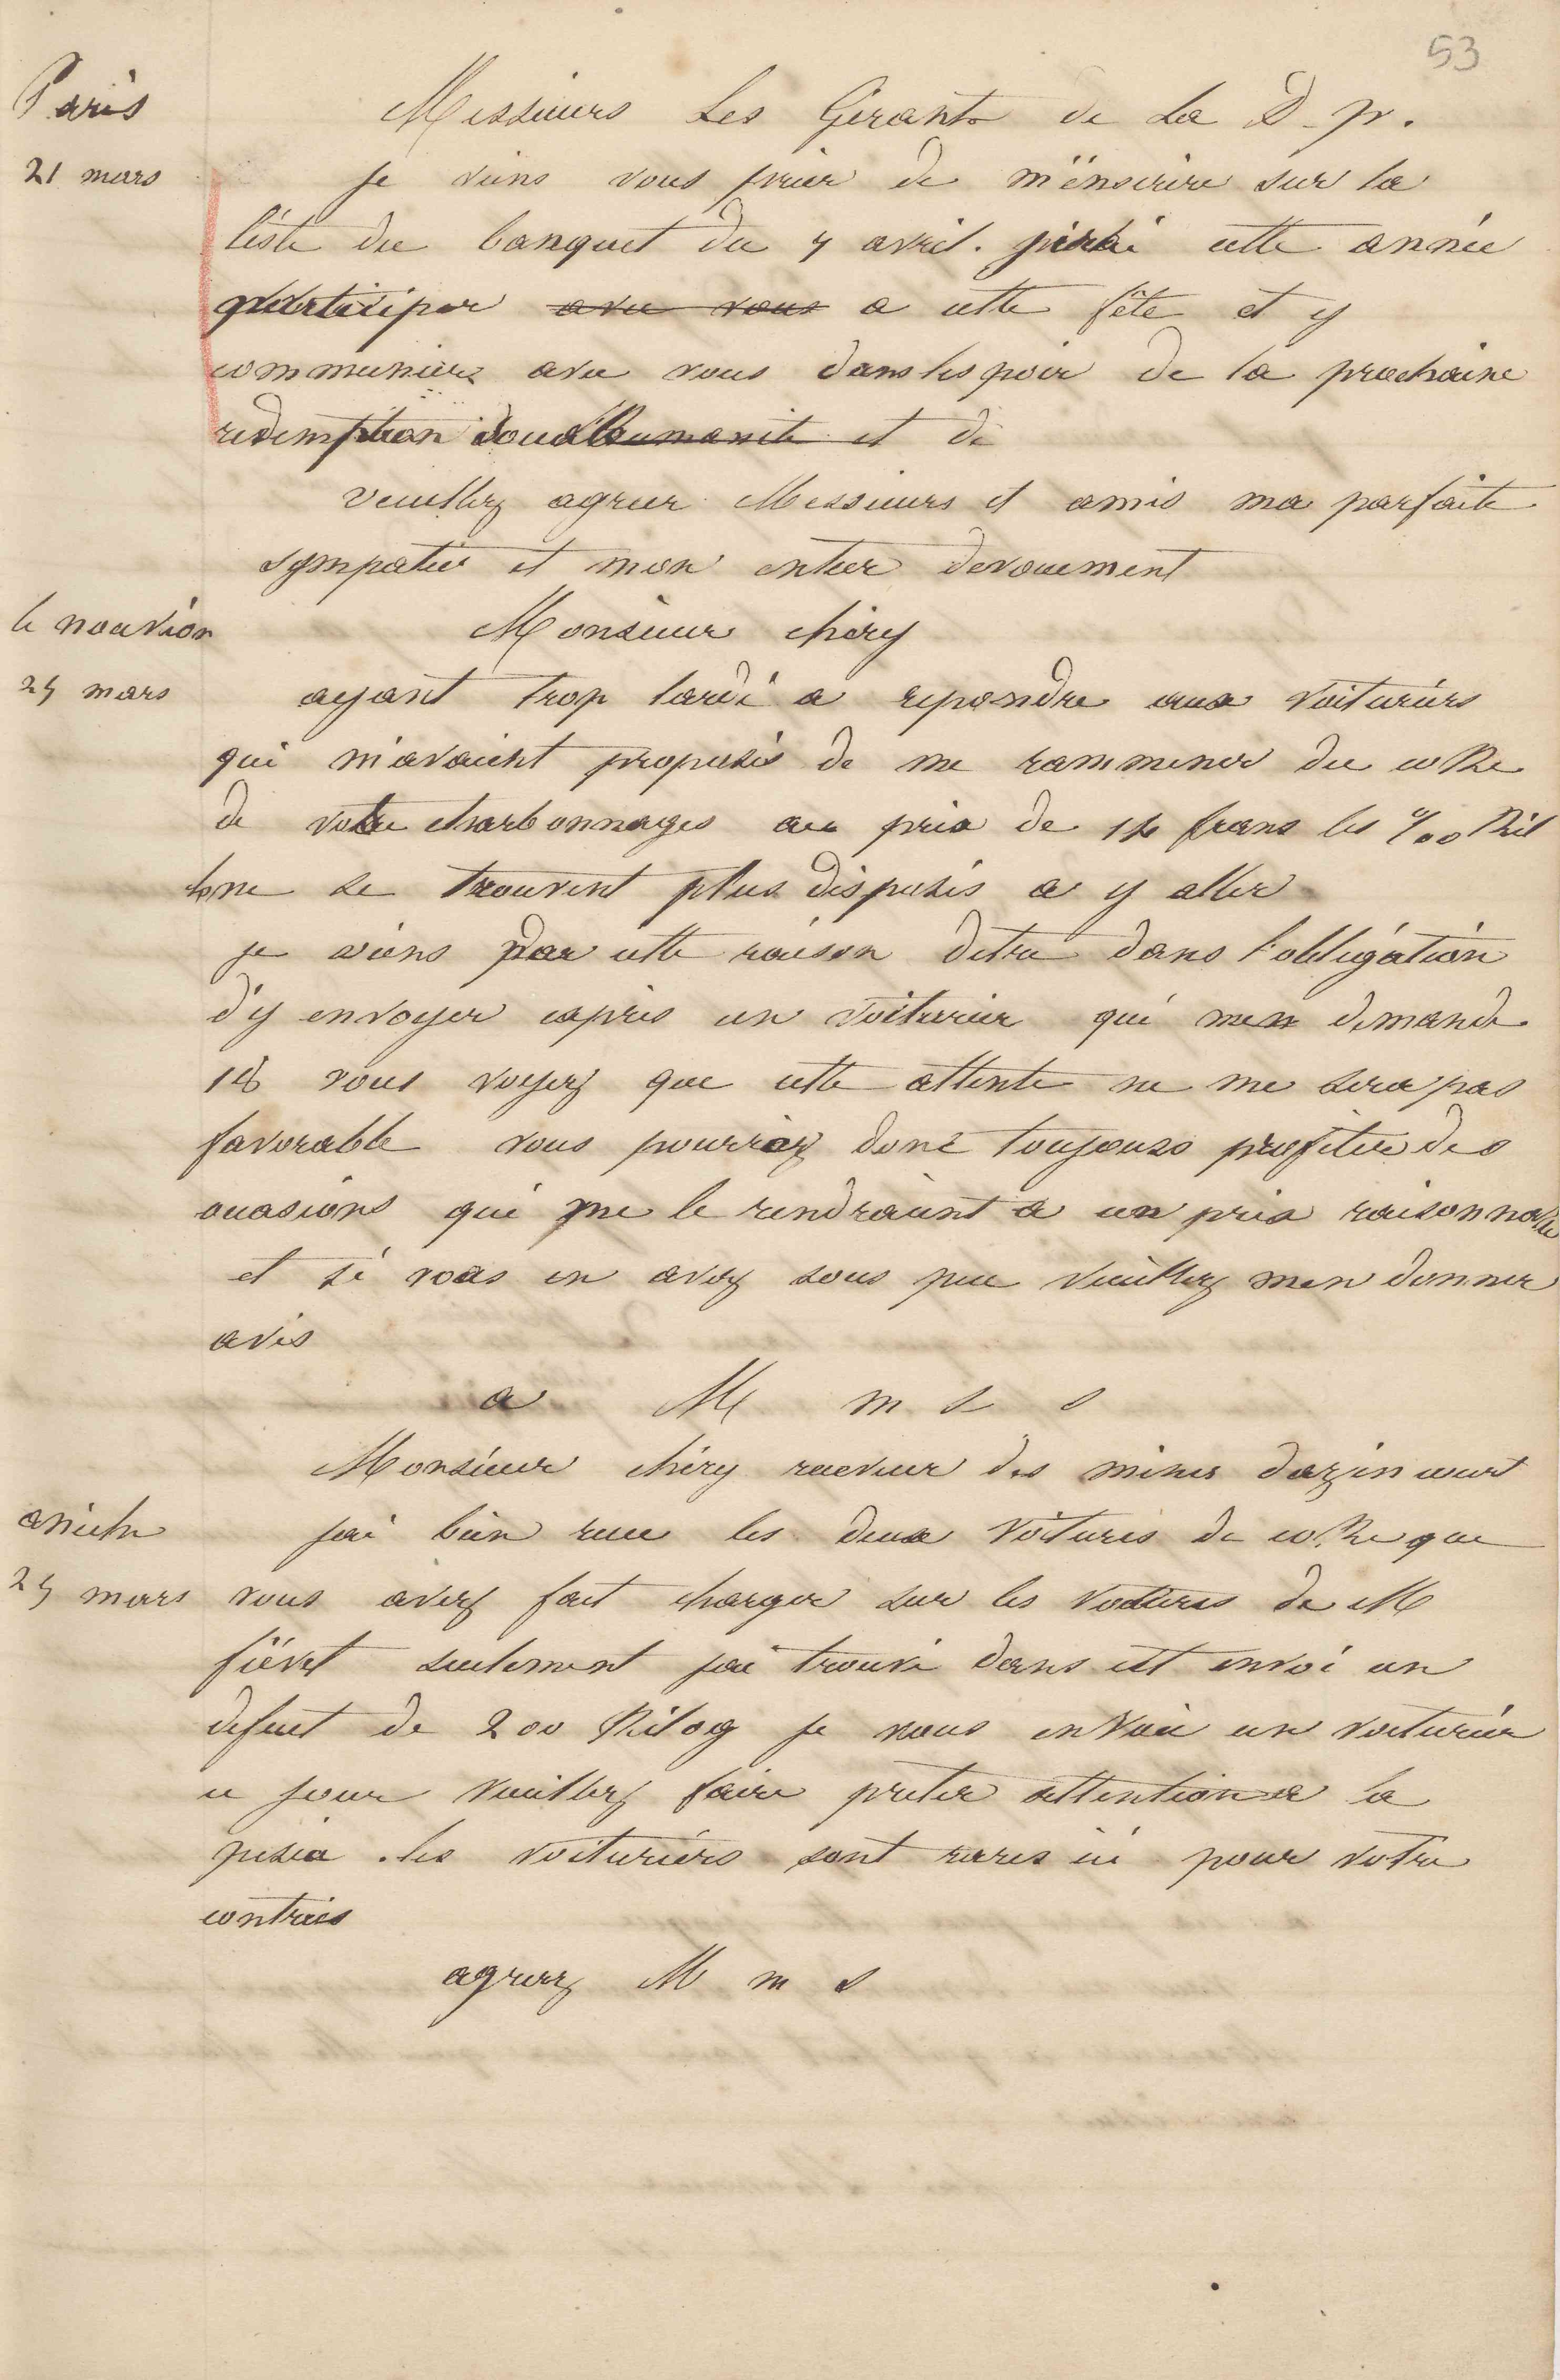 53
Paris
Messieurs Les Gerants de La D. p.
21 mars
je viens vous prier de m'enscrire sur la
liste du banquet du 7 avril. jirai cette année
participer avec vous a cette fête et y
communier avec vous dans lespoir de la prochaine
redemption et de
veuillez agreer Messieurs et amis ma parfaite
sympatie et mon entier devouement
le nouvion
Monsieur chéry
25 mars
ayant trop tardé a repondre aux voituriers
qui m'avaient proposés de me rammener du coke
de votre charbonnages au prix de 14 frans les Kil
ne se trouvent plus disposés a y aller
je viens par cette raison detre dans l'obligation
d'y envoyer expres un voiturier qui men demande
18 vous voyez que cette attente ne me sera pas
favorable vous pourriez donc toujours profiter des
occasions qui me le rendraient a un prix raisonnable
et si vous en avez sous peu veuillez men donner
avis
a M m s s
Monsieur chéry receveur des mines dazincourt
aniche
jai bien recu les deux voitures de coke que
25 mars
vous avez fait charger sur les voitures de M
fiévet seulement jai trouvé dans cet envoi un
deficit de 200 Kilog je vous envoie un voiturier
ce jour veuillez faire preter attention a la
pesée . les voituriers sont rares ici pour votre
contrées
agreez M m s